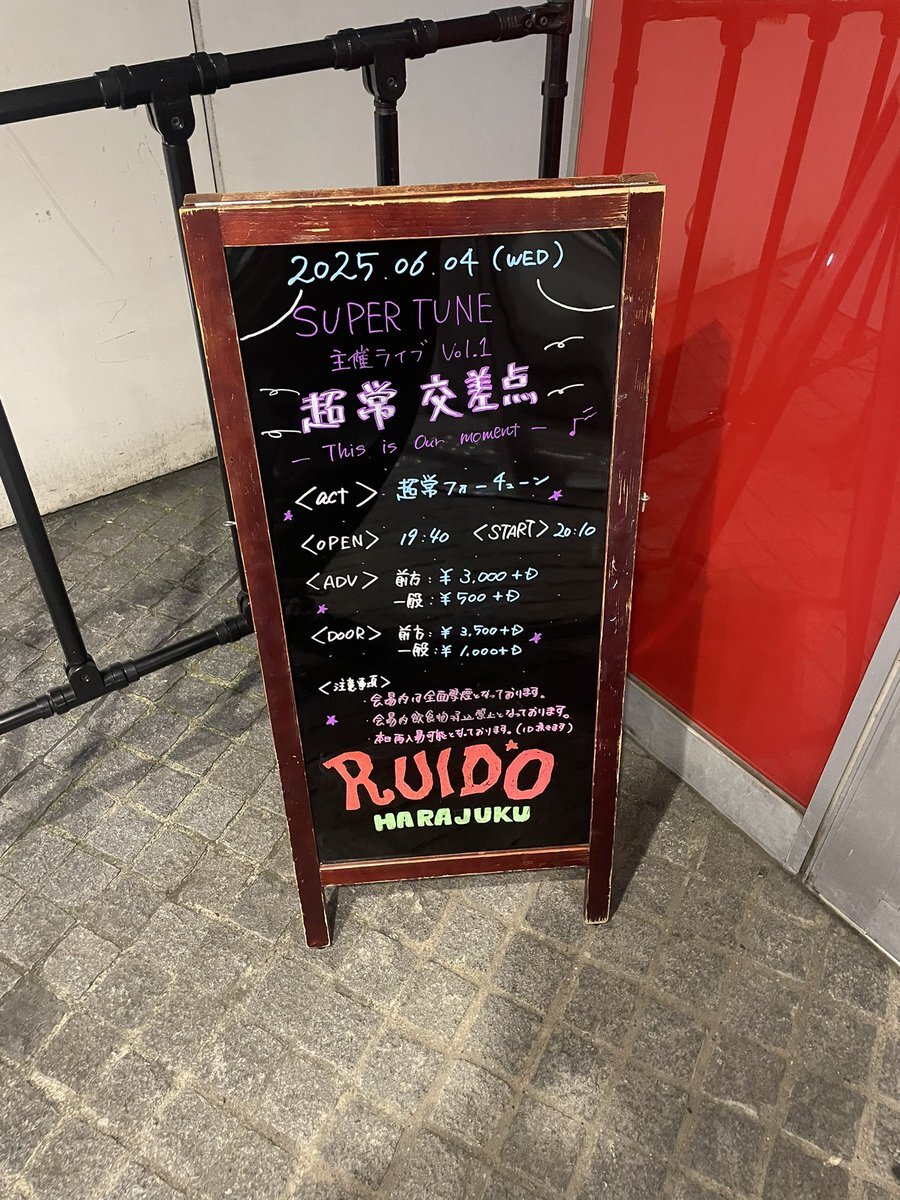 2025.06.04 (WED)
SUPER TUNE
主催ライブ Vol.1
超常 交差点
— This is Our moment —
<act> 超常フォーチューン
<OPEN> 19:40 <START> 20:10
<ADV> 前方:¥3,000+D
一般:¥500+D
<DOOR> 前方:¥3,500+D
一般:¥1,000+D
<注意事項>
会場内は全面禁煙となっております。
会場内飲食物持込禁止となっております。
本日再入場可能となっております。(1D頂きます)
RUIDO
HARAJUKU